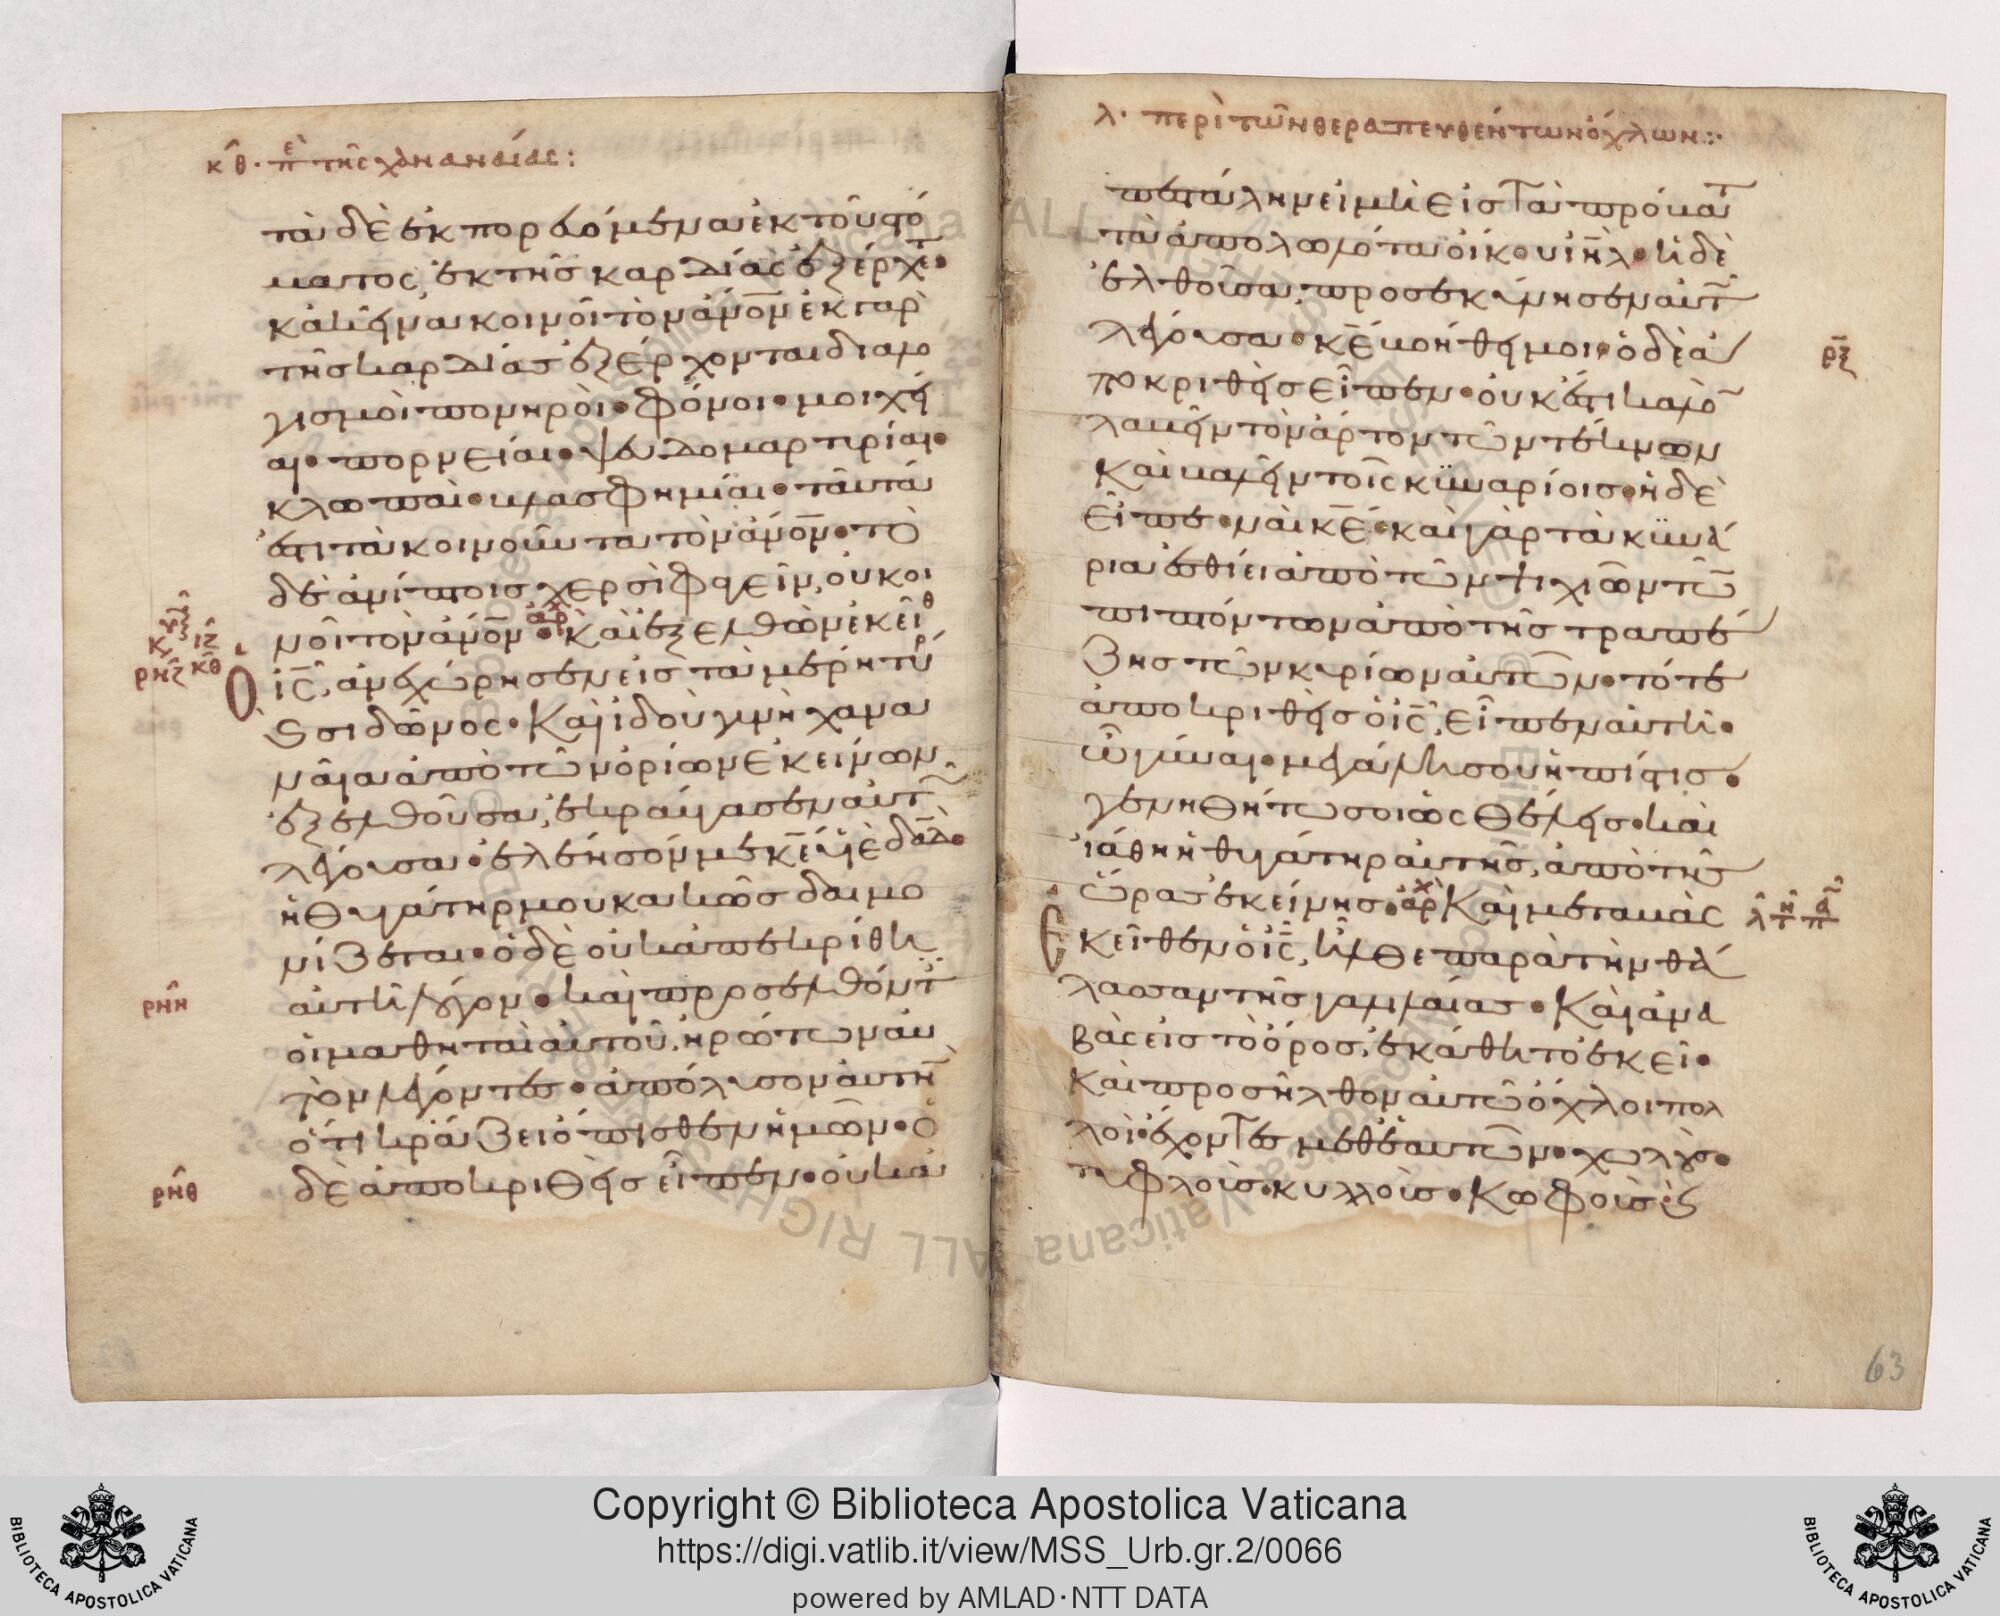 κθ· πε τῆς χαναναίας:
τὰ δὲ ἐκπορευόμενα ἐκ τοῦ στό
ματος, ἐκ τῆς καρδίας ἐξέρχετ·
κἀκεῖνα κοινοῖ τὸν ἄνον· ἐκ γὰρ
τῆς καρδίας ἐξέρχονται διαλο
γισμοὶ πονηροὶ· φόνοι· μοιχεῖ
αι· πορνεῖαι· ψευδομαρτυρίαι·
κλωπαὶ· βλασφημίαι· ταῦτά
ἐστι τὰ κοινοῦντα τὸν ἄνον· τὸ
δὲ ἀνίπτοις χερσὶ φαγεῖν, οὐ κοι
νοῖ τὸν ἄνον· ἀρχ καὶ ἐξελθὼν ἐκεῖθ
ὁ ις, ἀνεχώρησεν εἰς τὰ μέρη τύρ
ϛ σιδῶνος· Καὶ ἰδοὺ γυνὴ χανα
ναία ἀπὸ τῶν ὁρίων ἐκείνων
ἐξελθοῦσα, ἐκραύγασεν αὐτ
λέγουσα· ἐλέησόν με κε υἱὲ δαδ·
ἡ θυγάτηρ μου κακῶς δαιμο
νίζεται· ὁ δὲ οὐκ ἀπεκρίθη
αὐτῆ λόγον· καὶ προσελθόντ
οἱ μαθηταὶ αὐτοῦ, ἠρώτων αὐ
τὸν λέγοντες· ἀπόλυσον αὐτὴν
ὅτι κράζει ὄπισθεν ἡμῶν· ὁ
δὲ ἀποκριθεὶς εἶπεν· οὐκ ἀ
ρνζ κθ
ρνη
ρνθ
λ· περὶ τῶν θεραπευθέντων ὄχλων:·
πεστάλην εἰ μὴ εἰς τὰ πρόβατ
τὰ ἀπολωλότα οἴκου ιηλ· ἡ δὲ
ἐλθοῦσα, προσεκύνησεν αὐτ
λέγουσα· κε βοήθει μοι· ὁ δὲ ἀ
ποκριθεὶς εἶπεν· οὐκ ἔστι καλὸ
λαβεῖν τὸν ἄρτον τῶν τέκνων
καὶ βαλεῖν τοῖς κυναρίοις· ἡ δὲ
εἶπε· ναὶ κε· καὶ γὰρ τὰ κυνά
ρια ἐσθίει ἀπὸ τῶν ψιχίων τῶ
πιπτόντων ἀπὸ τῆς τραπέ
ζης τῶν κυρίων αὐτῶν· τότε
ἀποκριθεὶς ὁ ις, εἶπεν αὐτῆ·
ὦ γύναι· μεγάλη σου ἡ πίστις·
γενηθήτω σοι ὡς θέλεις· καὶ
ἰάθη ἡ θυγάτηρ αὐτῆς, ἀπὸ τῆς
ὥρας ἐκείνης· ἀρχ Καὶ μεταβὰς
ἐκεῖθεν ὁ ις, ἦλθε παρὰ τὴν θά
λασσαν τῆς γαλιλαίας· Καὶ ἀνα
βὰς εἰς τὸ ὄρος, ἐκάθητο ἐκεῖ·
καὶ προσῆλθον αὐτῶ ὄχλοι πολ
λοὶ ἔχοντες μεθ' ἑαυτῶν· χωλοὺς·
τυφλοὺς· κυλλοὺς· κωφοὺς· ϛ
ρξ
63
Copyright © Biblioteca Apostolica Vaticana
https://digi.vatlib.it/view/MSS_Urb.gr.2/0066
powered by AMLAD·NTT DATA
BIBLIOTECA APOSTOLICA VATICANA
BIBLIOTECA APOSTOLICA VATICANA